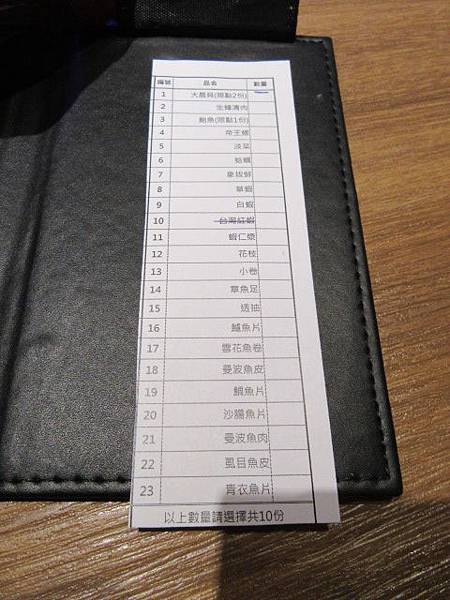 編號 品名 數量
1 大扇貝(限點2份)
2 生蠔清肉
3 鮑魚(限點1份)
4 帝王螺
5 淡菜
6 蛤蠣
7 象拔蚌
8 草蝦
9 白蝦
10 台灣紅蝦
11 蝦仁漿
12 花枝
13 小卷
14 章魚足
15 透抽
16 鱸魚片
17 雪花魚卷
18 曼波魚皮
19 鯛魚片
20 沙腸魚片
21 曼波魚肉
22 虱目魚皮
23 青衣魚片
以上數量請選擇共10份